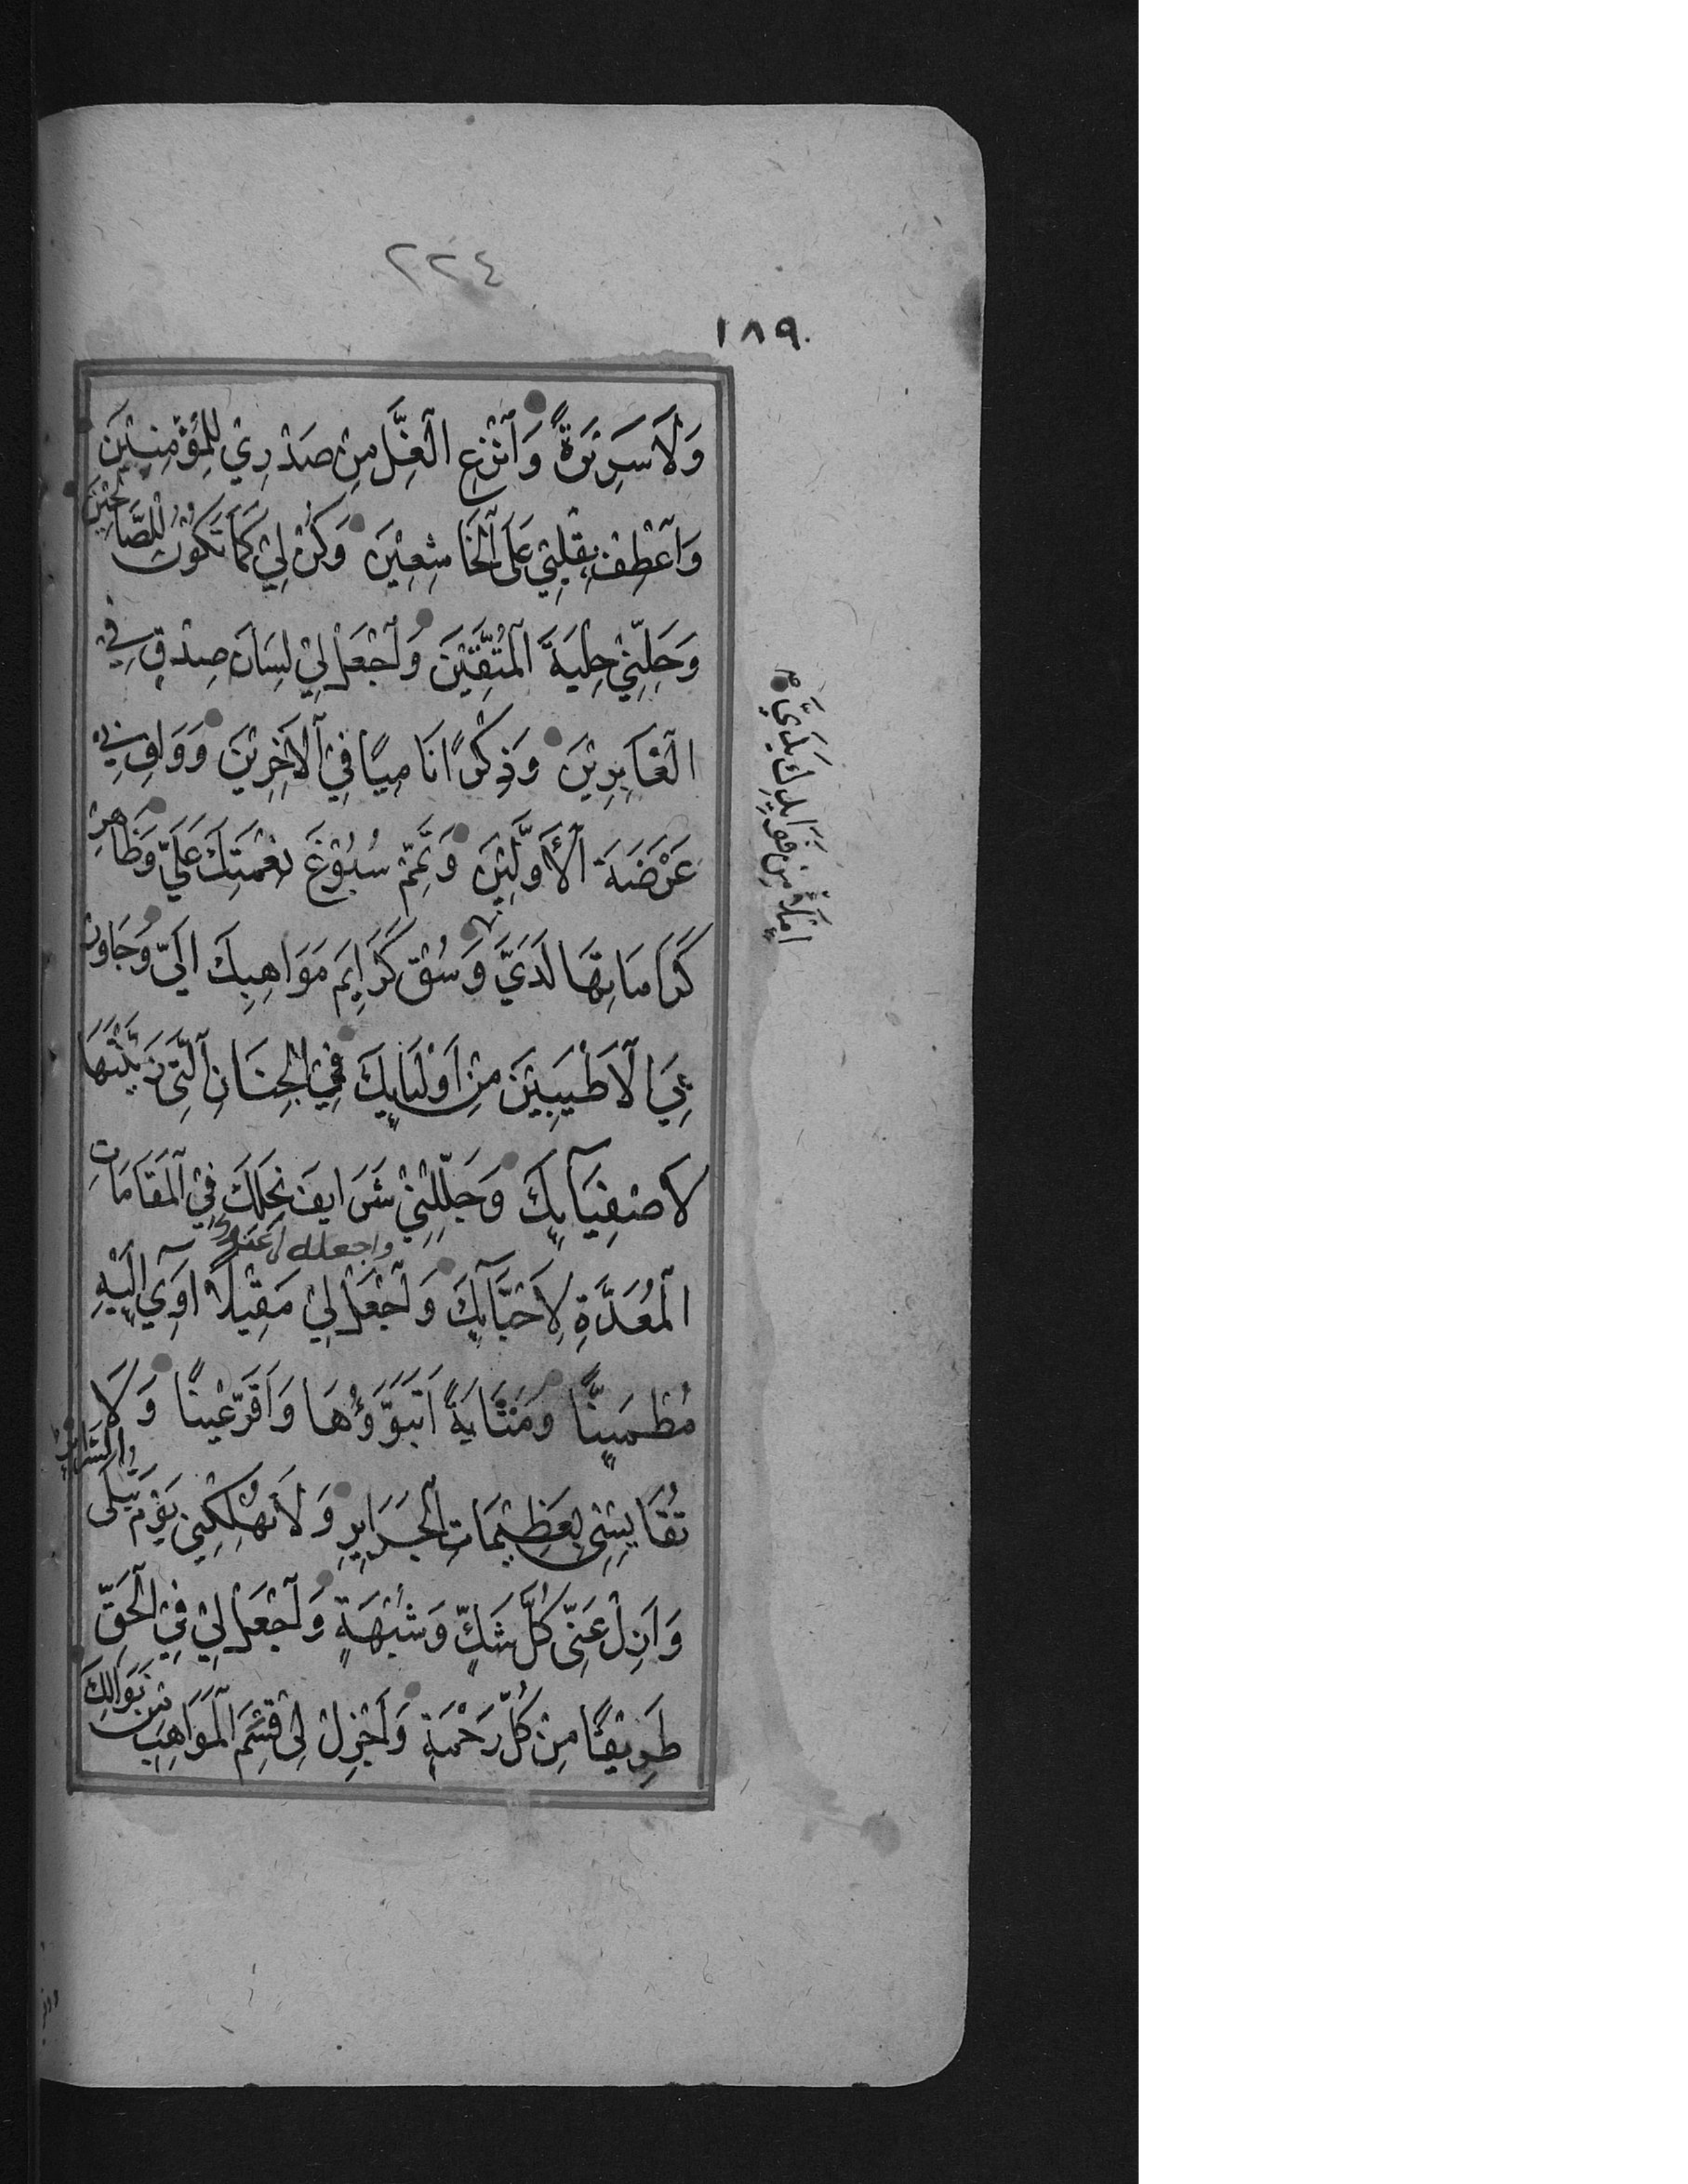 ٢٢٤
١٨٩
وَلَا سَرِيْرَةً وَٱنْزِعِ ٱلْغِلَّ مِنْ صَدْرِيْ لِلْمُؤْمِنِيْنَ
وَٱعْطِفْ بِقَلْبِيْ عَلَى ٱلْخَاشِعِيْنَ وَكُنْ لِيْ كَمَا تَكُوْنُ لِلصَّالِحِيْنَ
وَحَلِّنِيْ حِلْيَةَ ٱلْمُتَّقِيْنَ وَٱجْعَلْ لِيْ لِسَانَ صِدْقٍ فِي
ٱلْغَابِرِيْنَ وَذِكْرًا نَامِيًا فِيْ ٱلْآخِرِيْنَ وَوَافِ بِيْ
عَرْصَةَ ٱلْأَوَّلِيْنَ وَتَمِّمْ سُبُوْغَ نِعْمَتِكَ عَلَيَّ وَظَاهِرْ
كَرَامَاتِهَا لَدَيَّ وَسُقْ كَرَايِمَ مَوَاهِبِكَ اِلَيَّ وَجَاوِرْ
بِيَ ٱلْاَطْيَبِيْنَ مِنْ اَوْلِيَايِكَ فِيْ ٱلْجِنَانِ ٱلَّتِيْ زَيَّنْتَهَا
لِاَصْفِيَايِكَ وَجَلِّلْنِيْ شَرَايِفَ نِحَلِكَ فِيْ ٱلْمَقَامَاتِ
واجعل لى عندك
ٱلْمُعَدَّةِ لِاَحِبَّايِكَ وَٱجْعَلْ لِيْ مَقِيْلًا اٰوِيْ اِلَيْهِ
مُطْمَيِنًّا وَمَثَابَةً اَتَبَوَّؤُهَا وَاَقَرَّ عَيْنًا وَلَا
تُقَايِسْنِيْ بِعَظِيْمَاتِ ٱلْجَرَايِرِ وَلَا تُهْلِكْنِيْ يَوْمَ تُبْلَى ٱلسَّرَايِرُ
وَاَزِلْ عَنِّيْ كُلَّ شَكٍّ وَشُبْهَةٍ وَٱجْعَلْ لِيْ فِيْ ٱلْحَقِّ
طَرِيْقًا مِنْ كُلِّ رَحْمَةٍ وَاَجْزِلْ لِيْ قِسَمَ ٱلْمَوَاهِبِ مِنْ نَوَالِكَ
امْلَأْ مِنْ فَوَايِدِكَ يَدَيَّ